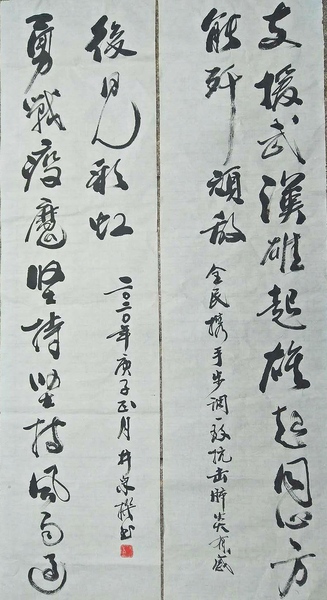 支援武漢雄起雄起同心方
能歼頑敌
全民携手步调一致抗击肺炎有感
勇戰疫魔坚持坚持风雨过
後见彩虹
二〇二〇年庚子正月井泉书